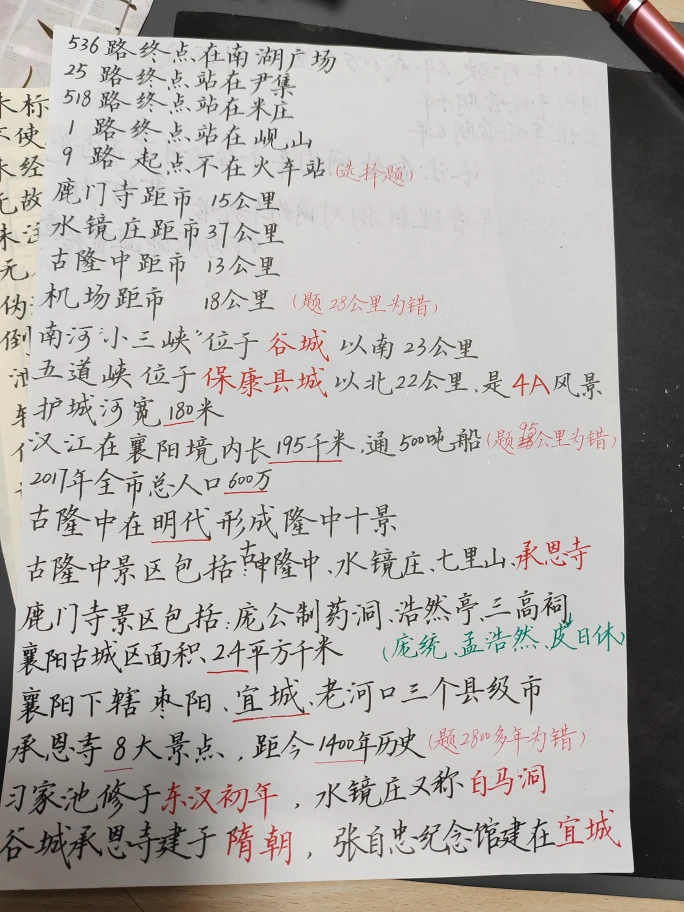 536路终点在南湖广场
25路终点站在尹集
518路终点站在米庄
1路终点站在岘山
9路起点不在火车站(选择题)
鹿门寺距市 15公里
水镜庄距市37公里
古隆中距市 13公里
机场距市 18公里 (题28公里为错)
南河"小三峡"位于谷城以南23公里
五道峡位于保康县城以北22公里,是4A风景
护城河宽180米
汉江在襄阳境内长195千米,通500吨船(题95公里为错)
2017年全市总人口600万
古隆中在明代形成隆中十景
古隆中景区包括:古隆中、水镜庄、七里山、承恩寺
鹿门寺景区包括:庞公制药洞、浩然亭、三高祠
襄阳古城区面积、2.4平方千米 (庞统、孟浩然、皮日休)
襄阳下辖枣阳、宜城、老河口三个县级市
承恩寺8大景点,距今1400年历史(题2800多年为错)
习家池修于东汉初年,水镜庄又称白马洞
谷城承恩寺建于隋朝,张自忠纪念馆建在宜城
木标
使
未经
无故
未注
无
伪
倒